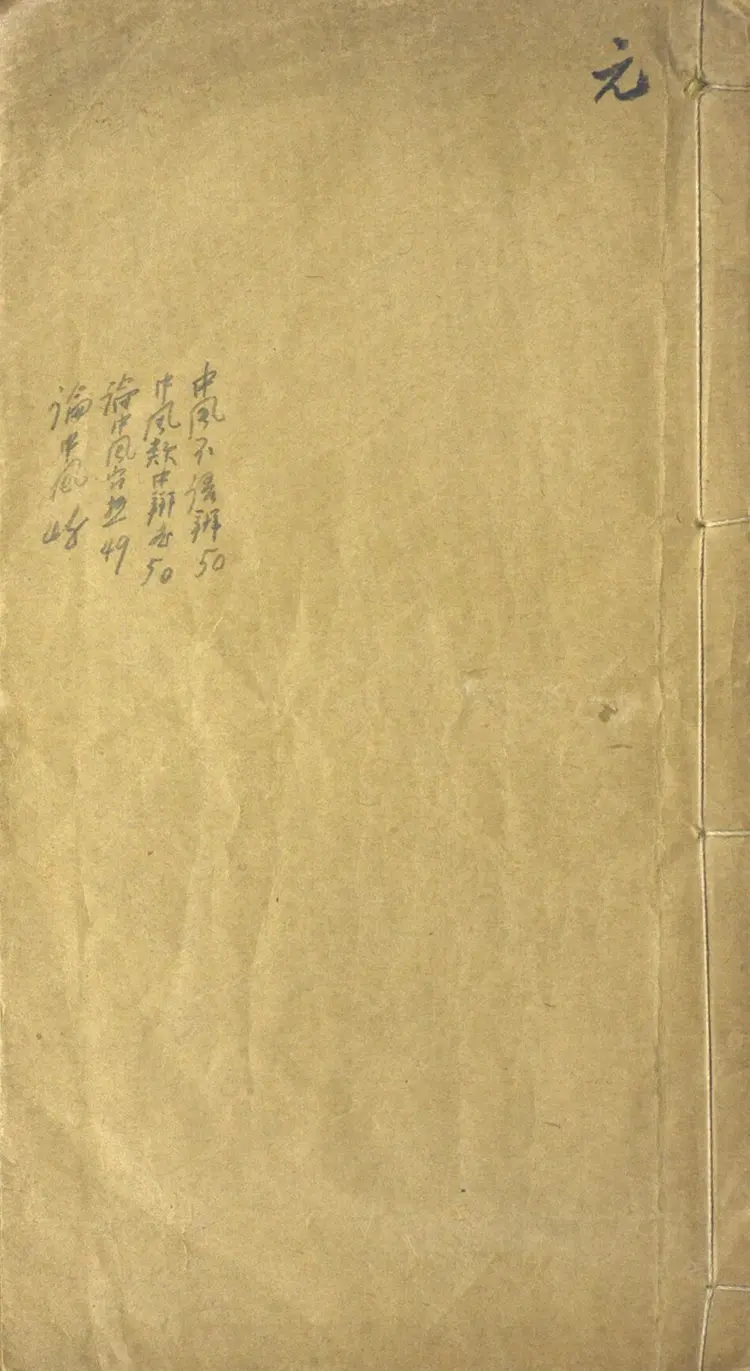 元
中風不语辨 50
中風類中辨 50
論中風 49
論中風 48